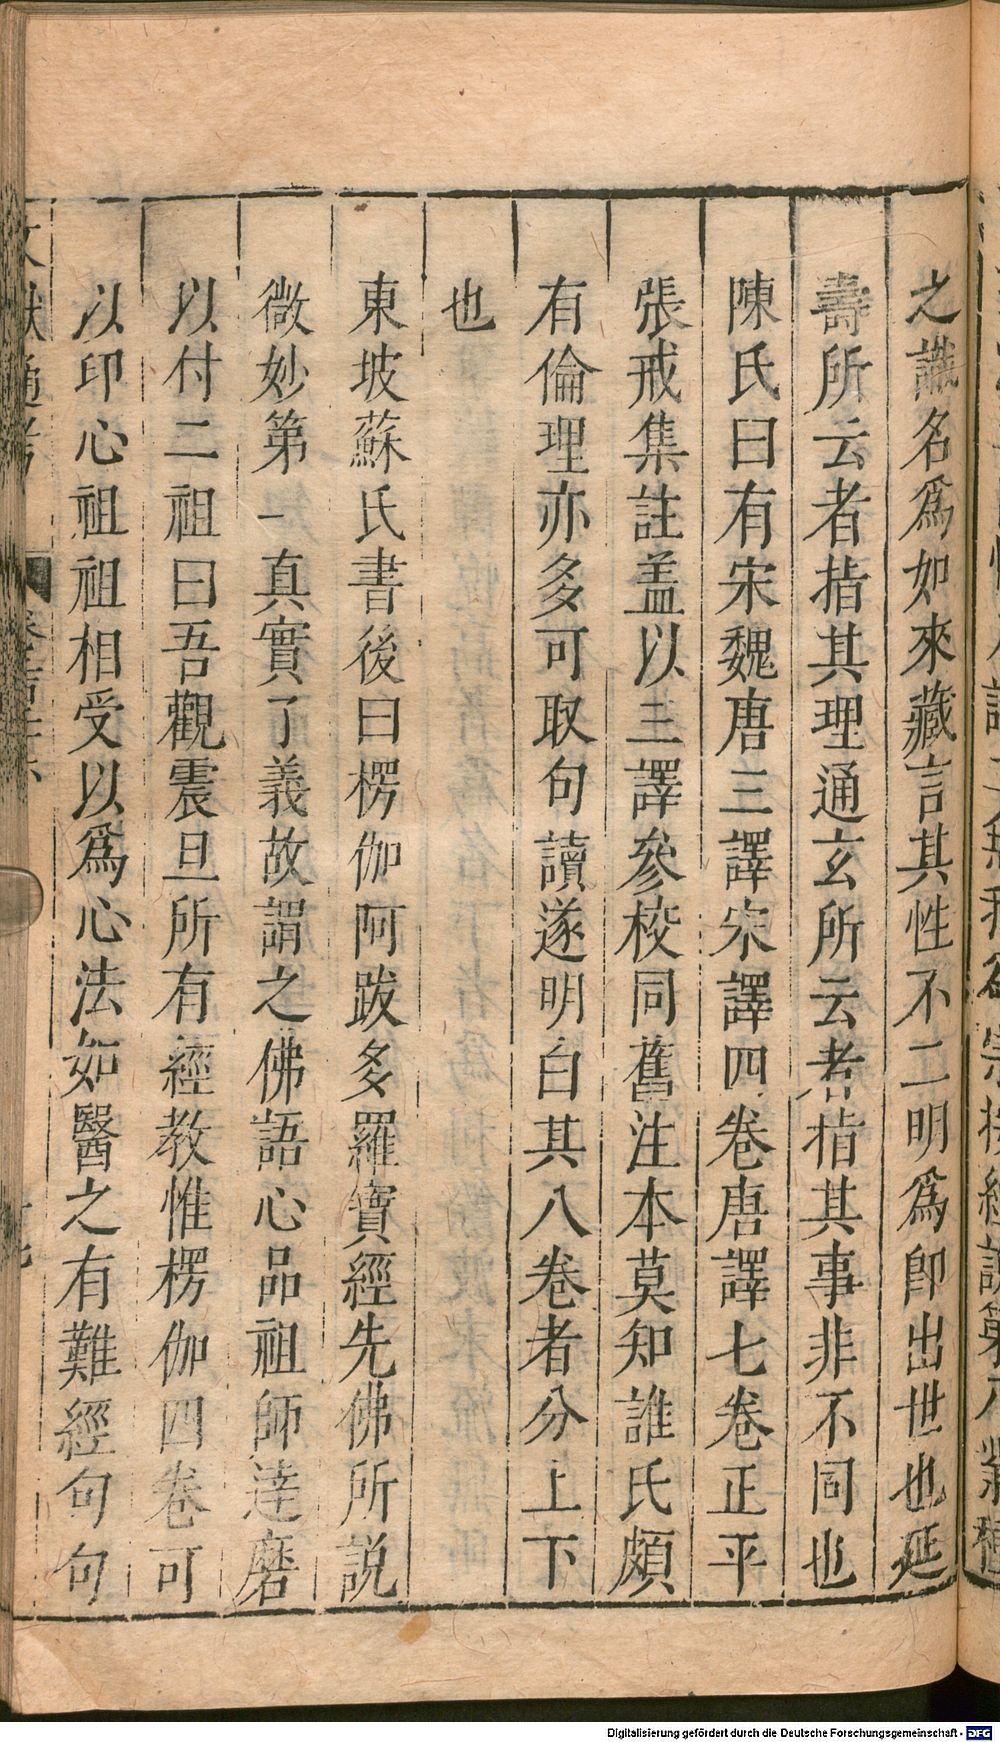 之識名爲如來藏言其性不二明爲卽出世也延
壽所云者指其理通玄所云者指其事非不同也
陳氏曰有宋魏唐三譯宋譯四卷唐譯七卷正平
張戒集註盖以三譯參校同舊注本莫知誰氏頗
有倫理亦多可取句讀遂明白其八卷者分上下
也
東坡蘇氏書後曰楞伽阿跋多羅寶經先佛所説
微妙第一真實了義故謂之佛語心品祖師達磨
以付二祖曰吾觀震旦所有經教惟楞伽四卷可
以印心祖祖相受以爲心法如醫之有難經句句
文獻通考
Digitalisierung gefördert durch die Deutsche Forschungsgemeinschaft - DFG